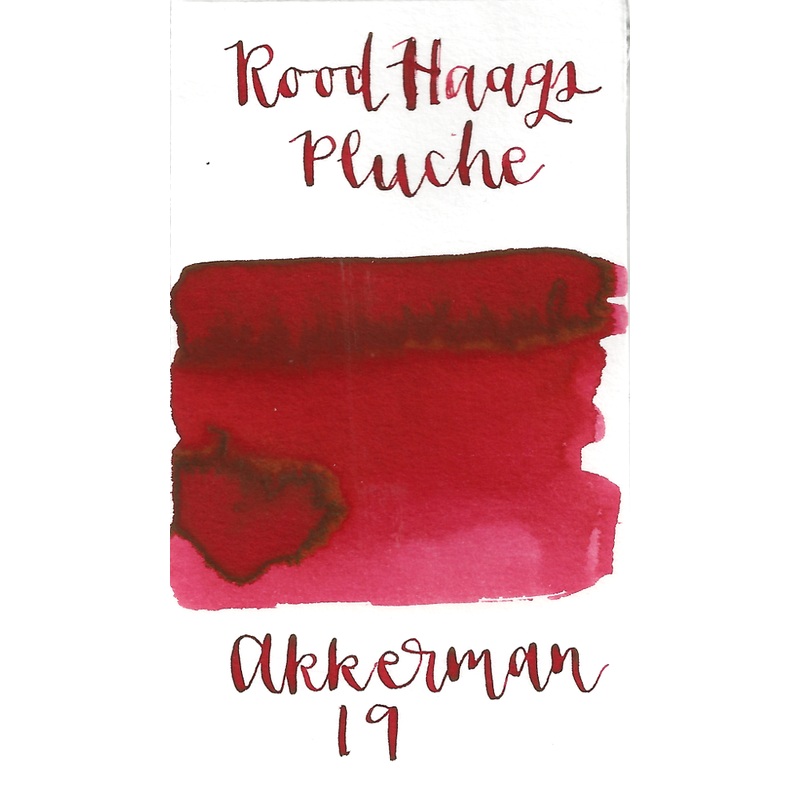 Rood Haags
Pluche
Akkerman
19